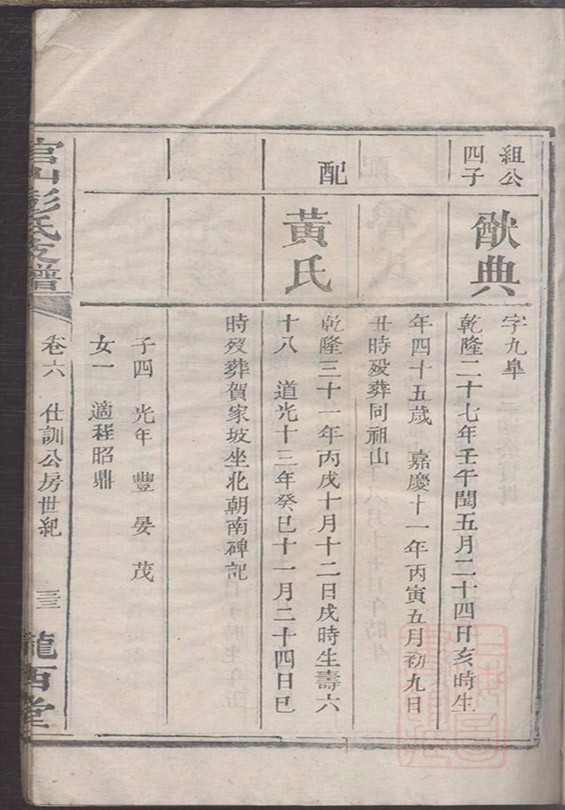 組公
四子
猷典
字九皐
乾隆二十七年壬午閏五月二十四日亥時生
年四十五歲 嘉慶十一年丙寅五月初九日
丑時殁葬同祖山
配
黃氏
乾隆三十一年丙戌十月十二日戌時生壽六
十八 道光十三年癸巳十一月二十四日巳
時殁葬賀家坡坐北朝南碑記
子四 光年 豐 晏 茂
女一 適程昭鼎
官山彭氏支譜
卷六 仕訓公房世紀
三三
隴西堂